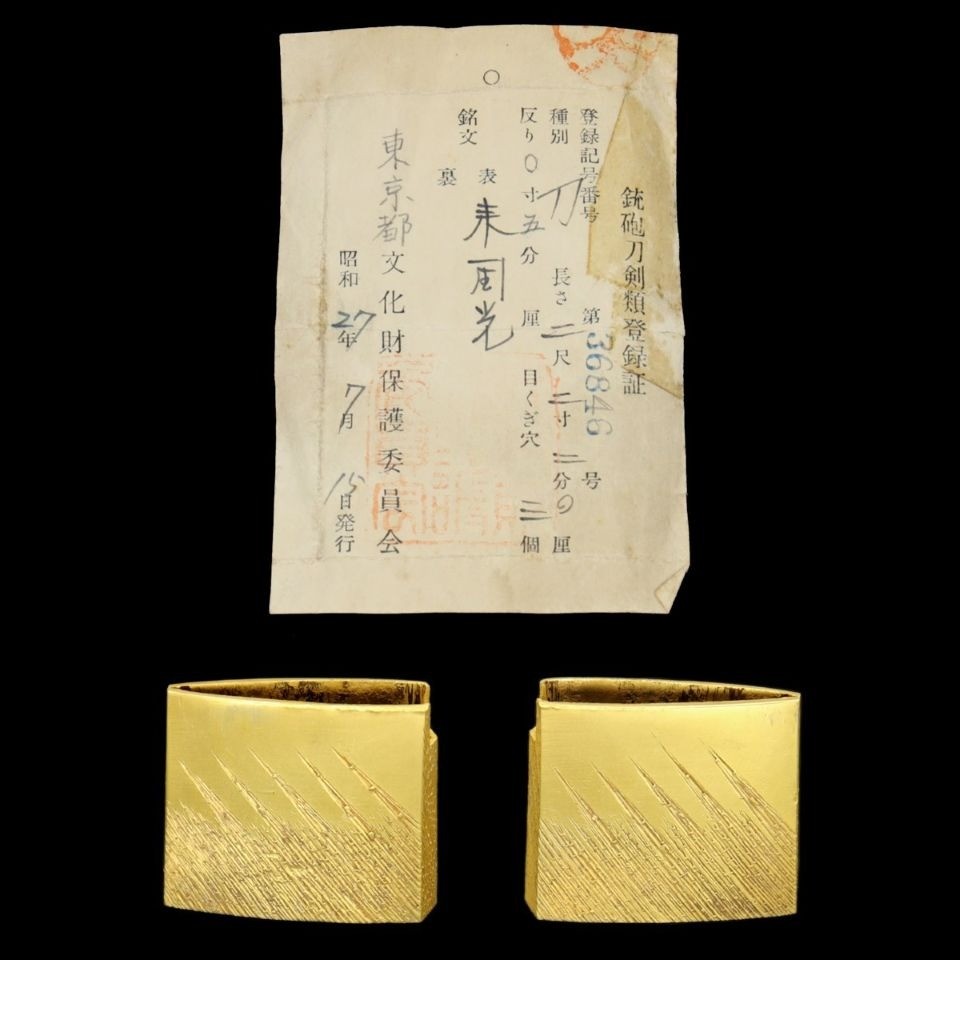 銃砲刀剣類登録証
登録記号番号 第36846号
種別 刀 長さ 二尺二寸二分0厘
反り 0寸五分 厘 目くぎ穴 三個
銘文 表 来国光
裏
東京都文化財保護委員会
昭和27年7月15日発行